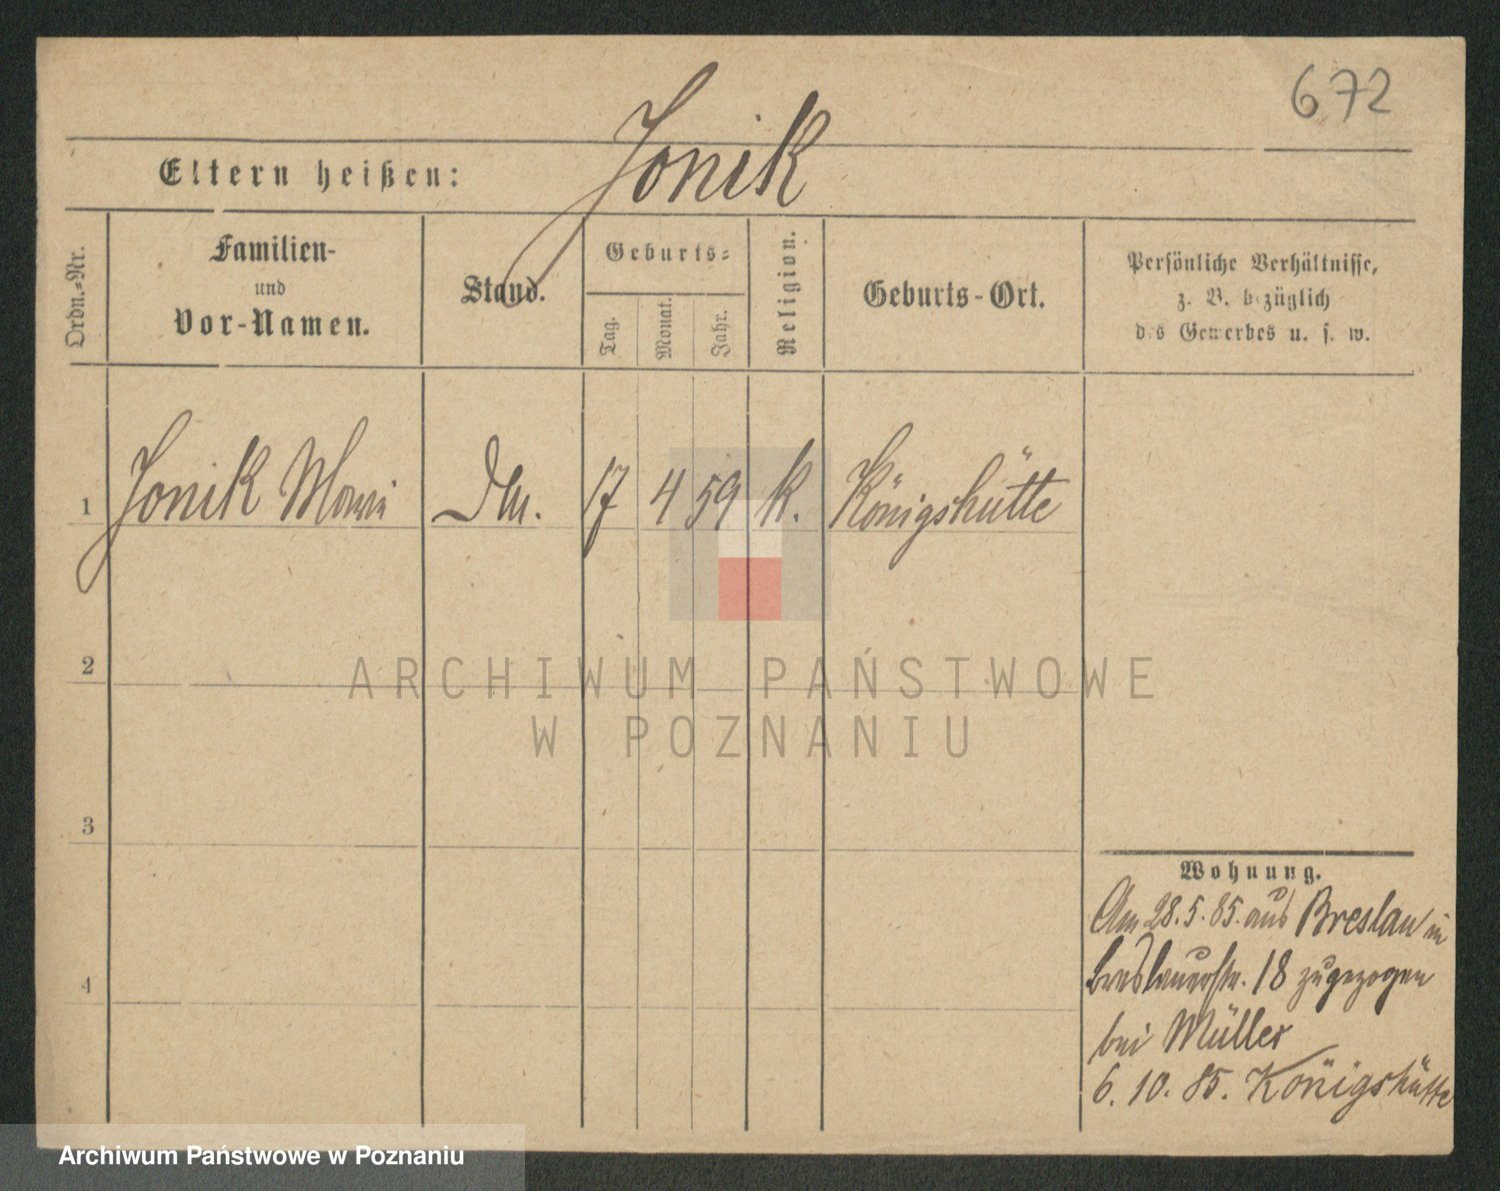 672
Jonik
Eltern heißen:
Ordn.=Nr.
Familien-
und
Vor-Namen.
Stand.
Geburts=
Tag.
Monat.
Jahr.
Religion.
Geburts-Ort.
Persönliche Verhältnisse,
z. B. bezüglich
des Gewerbes u. s. w.
1 Jonik Maria 17 4 59 k. Königshütte
2
ARCHIWUM PAŃSTWOWE
W POZNANIU
3
4
Wohnung.
Am 28.5.85. aus Breslau in
Breslauerstr. 18 zugezogen
bei Müller
6.10.85. Königshütte
Archiwum Państwowe w Poznaniu